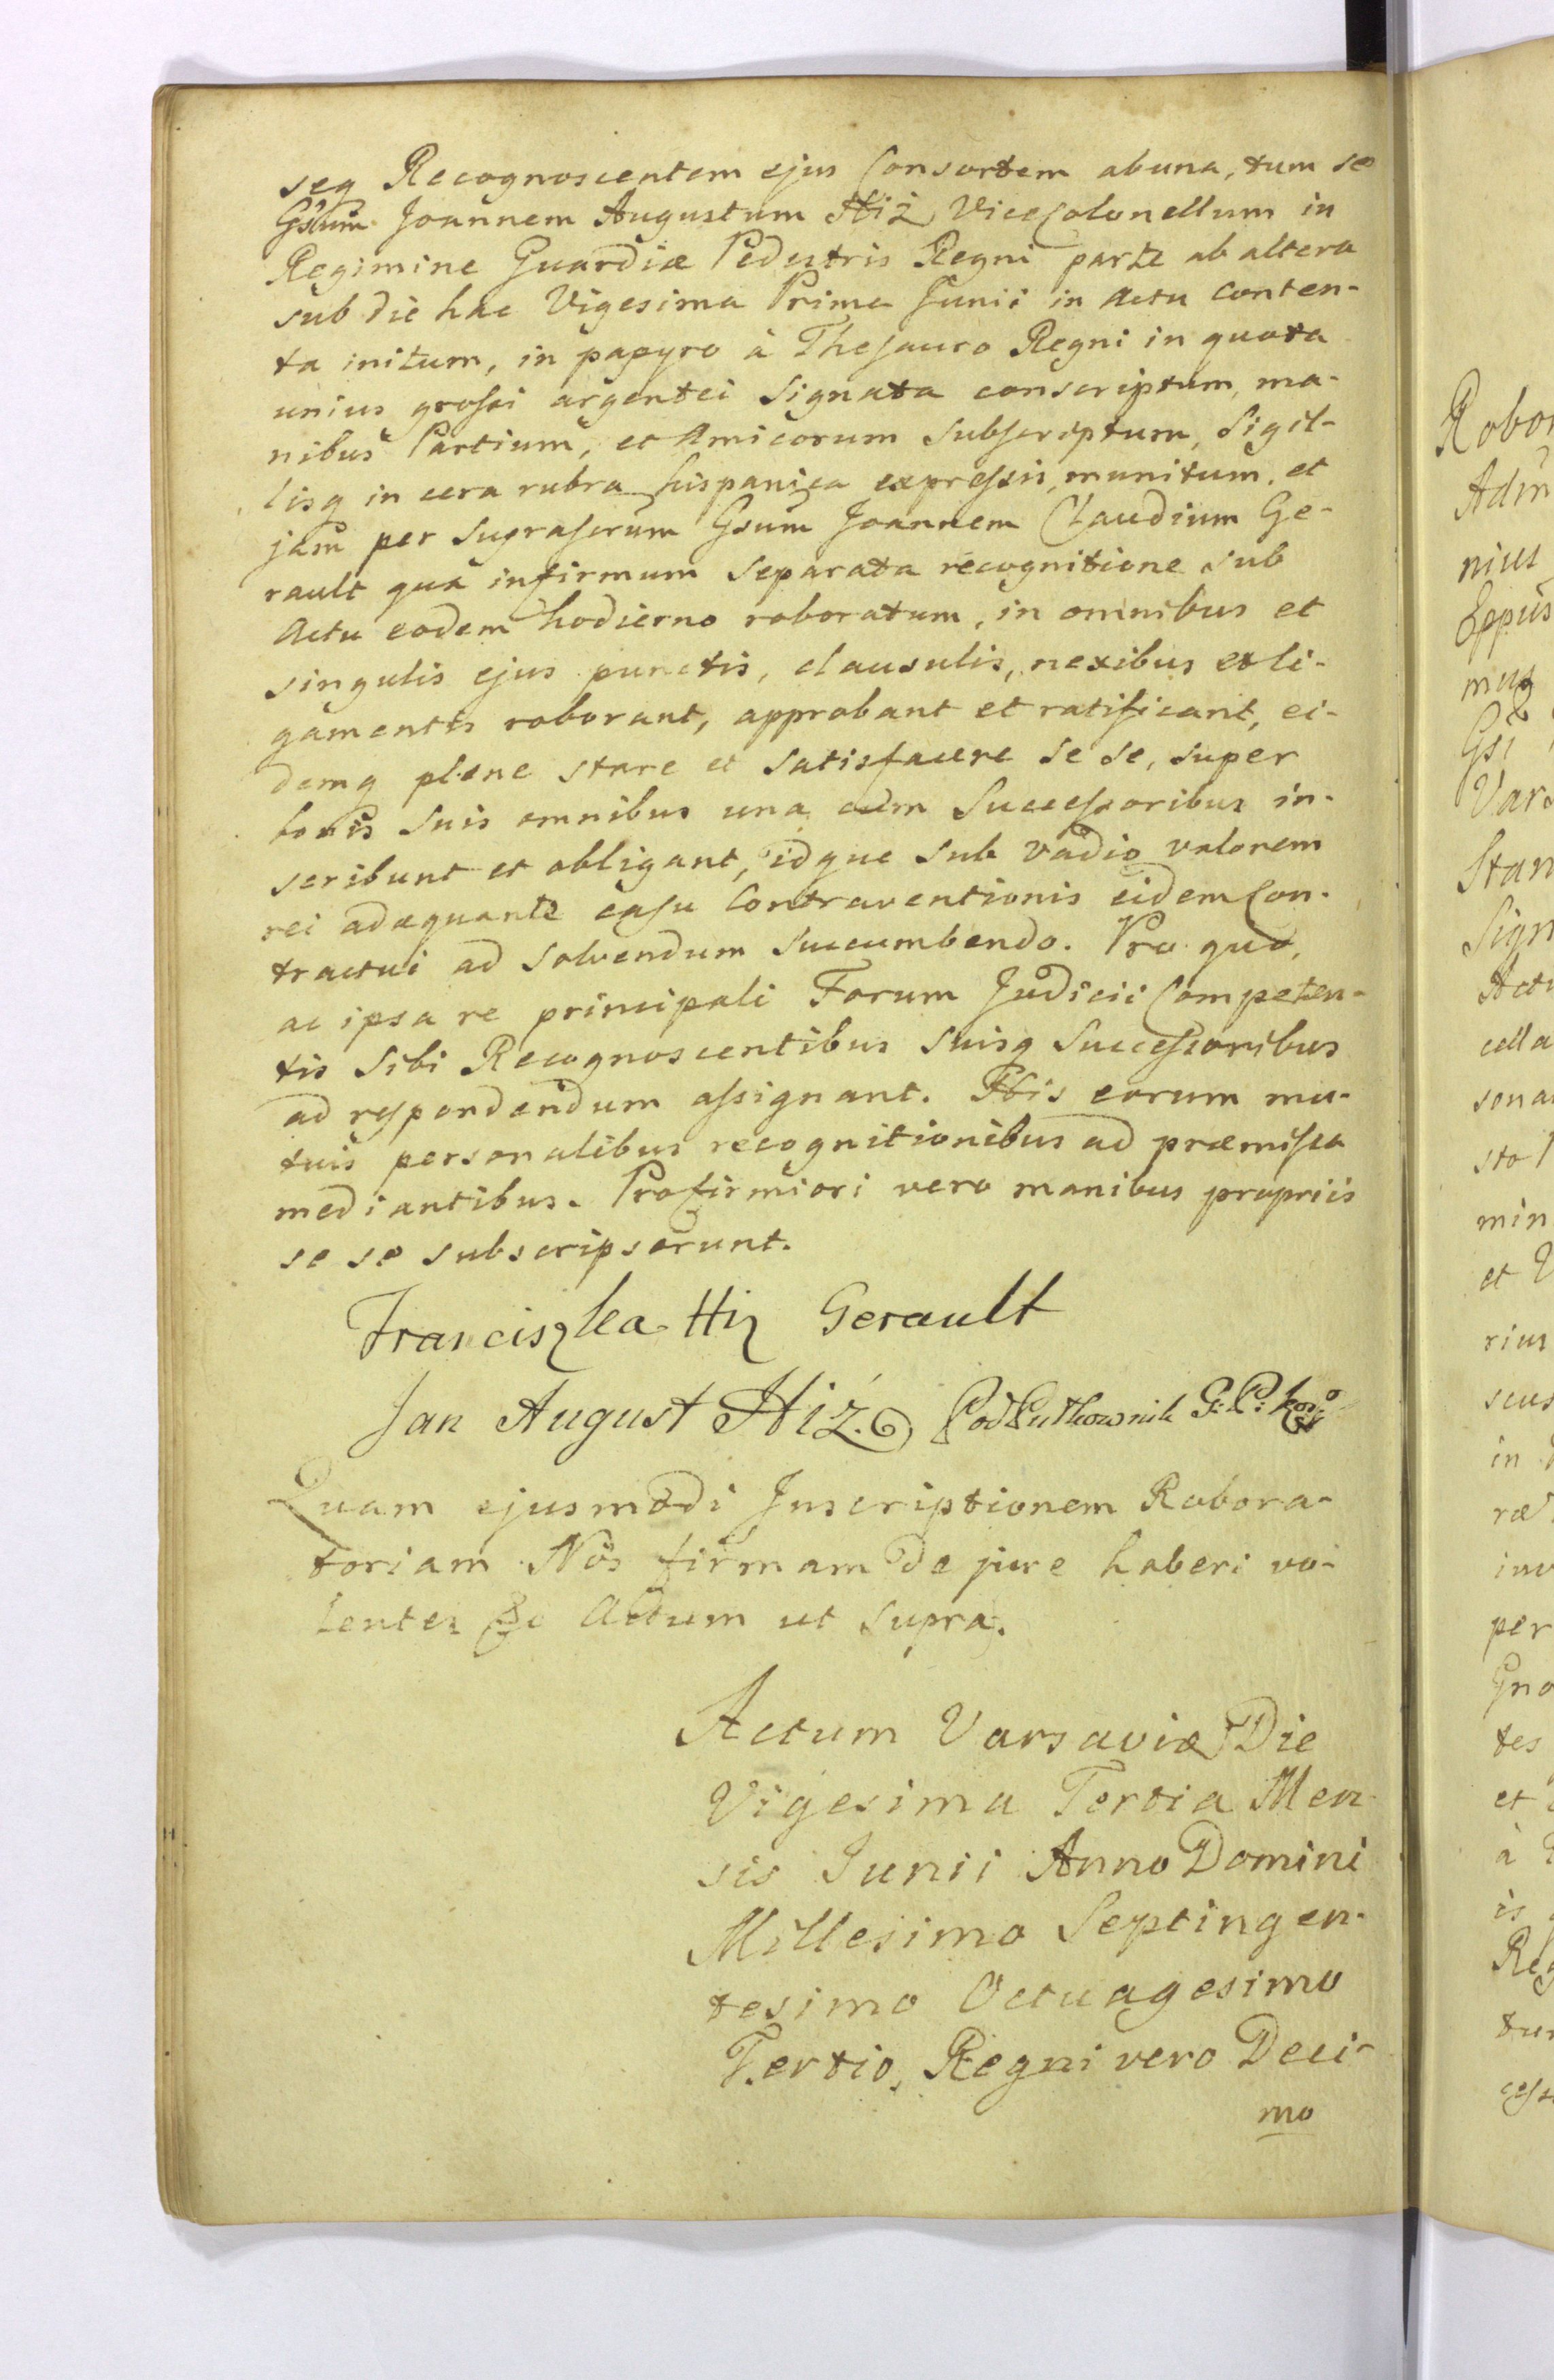 seq Recognoscentem ejus Consortem ab una, tum se
Gsum Joannem Augustum Hiż ViceColonellum in
Regimine Guardiæ Pedestris Regni parte ab altera
sub die hac Vigesima Prima Junii in Actu conten-
ta initum, in papyro à Thesauro Regni in quota
unius grossi argentei Signata conscriptum, ma-
nibus Partium, et Amicorum Subscriptum, Sigil-
lisq in cera rubra hispanica expressis, munitum, et
jam per suprascrum Gsum Joannem Claudium Ge-
rault qua infirmum Separata recognitione sub
Actu eodem hodierno roboratum, in omnibus et
singulis ejus punctis, clausulis, nexibus et li-
gamentis roborant, approbant et ratificant, ei-
demq plene stare et satisfacere se se, super
bonis suis omnibus una cum Successoribus in-
scribunt et obligant, idque sub vadio valorem
rei adæquante casu Contraventionis eidem Con-
tractui ad solvendum succumbendo. Pro quo,
ac ipsa re principali Forum Judicii Competen-
tis Sibi Recognoscentibus suisq Successoribus
ad respondendum assignant. His eorum mu-
tuis personalibus recognitionibus ad præmissa
mediantibus. Pro firmiori vero manibus propriis
se se subscripserunt.
Franciszka Hiz Gerault
Jan August Hiż. PodPułkownik G: P:
Quam ejusmodi Inscriptionem Robora-
toriam Nos firmam de jure haberi vo-
lentes &c Actum ut supra.
Actum Varsaviæ Die
Vigesima Tertia Men-
sis Junii Anno Domini
Millesimo Septingen-
tesimo Octuagesimo
Tertio, Regni vero Deci-
mo
Robor
Adm
nius
Eppus
musq
Gsi
Vars
Stan
Sign
Actu
cella
sona
sto
min
et
rius
scus
in
ræ
inv
per
Gno
tes
et
à
is
Reg
tur
cess